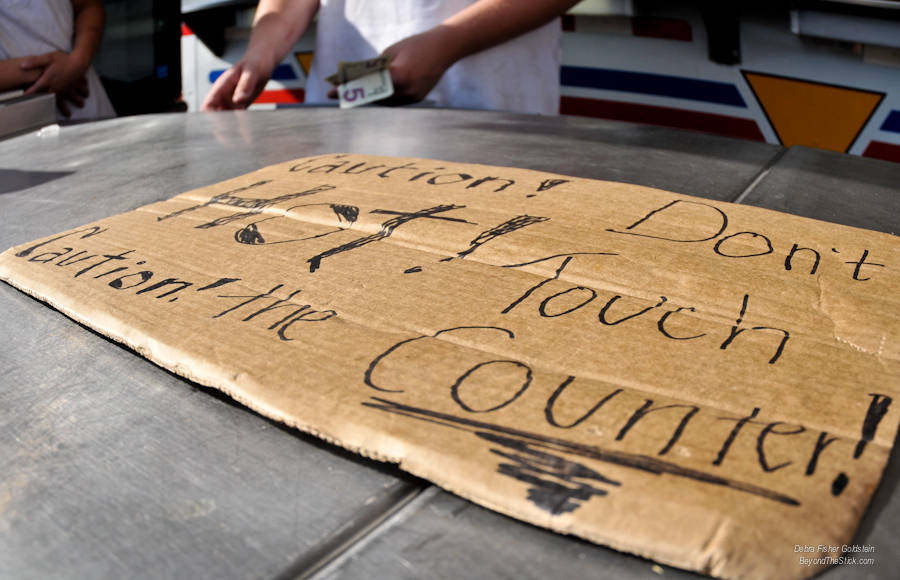 Caution!
Hot!! Don't
Touch
Caution! the
Counter!
5
Debra Fisher Goldstein
BeyondTheStick.com